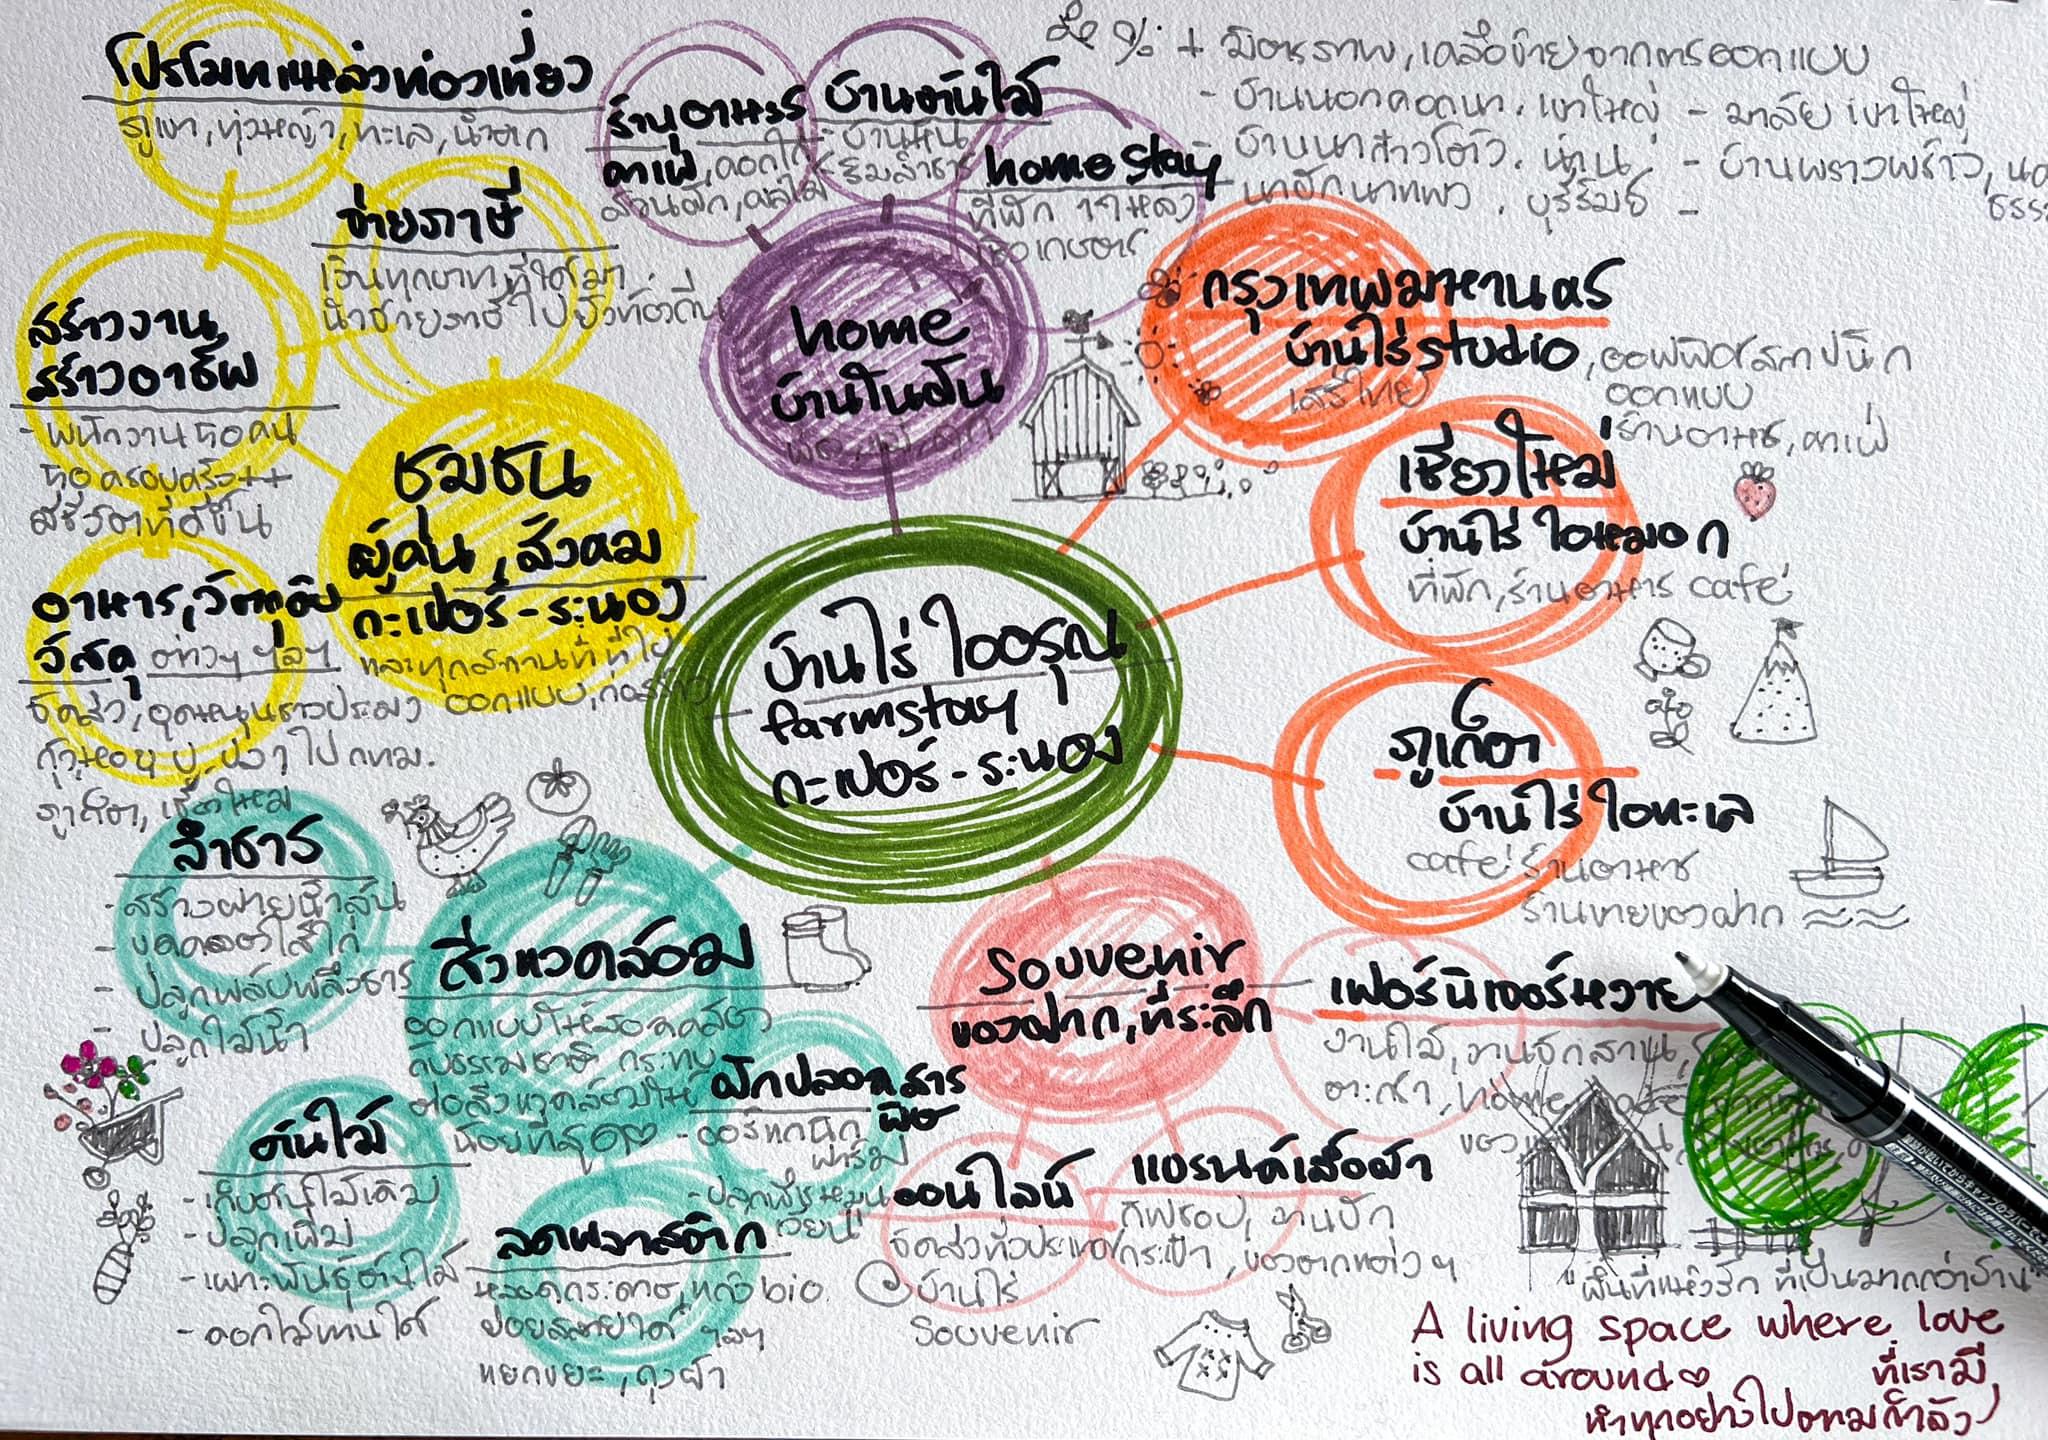 โปรโมทแหล่งท่องเที่ยว
ภูเขา, ทุ่งหญ้า, ทะเล, น้ำตก
จ่ายภาษี
เงินทุกบาทที่ได้มา
นำจ่ายภาษีไปยังท้องถิ่น
สร้างงาน
สร้างอาชีพ
- พนักงาน 50 คน
50 ครอบครัว++
มีชีวิตที่ดีขึ้น
ชุมชน
ผู้คน, สังคม
กะเปอร์-ระนอง
และทุกสถานที่ ที่ไป
ออกแบบ, ก่อสร้าง
อาหาร, วัตถุดิบ
วัสดุ ต่างๆ ฯลฯ
จัดส่ง, อุดหนุนชาวประมง
กุ้ง, หอย, ปู, ปลา ไป กทม.
ภูเก็ต, เชียงใหม่
ร้านอาหาร
คาเฟ่, ดอกไม้
สวนผัก, ผลไม้
บ้านต้นไม้
- บ้านหิน
- ริมลำธาร
home stay
ที่พัก
เชิงเกษตร
home
บ้านในฝัน
พ่อ, แม่, ลูก
+ มิตรภาพ, เครือข่ายจากการออกแบบ
- บ้านนอกคอกนา, เขาใหญ่ - มาลัย เขาใหญ่
น่าน - บ้านพราวพร้าว,
บุรีรัมย์ -
กรุงเทพมหานคร
บ้านไร่ studio, ออฟฟิศสถาปนิก
เสรีไทย ออกแบบ
ร้านอาหาร, คาเฟ่
เชียงใหม่
บ้านไร่ ไอหมอก
ที่พัก, ร้านอาหาร café
ภูเก็ต
บ้านไร่ ไอทะเล
café ร้านอาหาร
ร้านขายของฝาก
บ้านไร่ ไออรุณ
farmstay
กะเปอร์-ระนอง
ลำธาร
- สร้างฝายน้ำล้น
- ปลูกพลับพลึงธาร
- ปลูกไม้น้ำ
สิ่งแวดล้อม
ออกแบบให้สอดคล้อง
กับธรรมชาติ กระทบ
ต่อสิ่งแวดล้อมให้
น้อยที่สุด
ผักปลอดสาร
พิษ
- ออร์แกนิก
ฟาร์ม
- ปลูกพืชหมุน
เวียน
ต้นไม้
- เก็บต้นไม้เดิม
- ปลูกเพิ่ม
- เพาะพันธุ์ต้นไม้
- ดอกไม้ทานได้
ลดพลาสติก
หลอดกระดาษ, แก้ว bio
ย่อยสลายได้ ฯลฯ
แยกขยะ, ถุงผ้า
Souvenir
ของฝาก, ที่ระลึก
เฟอร์นิเจอร์หวาย
งานไม้, งานจักสาน,
ตะกร้า, home
ออนไลน์
จัดส่งทั่วประเทศ
บ้านไร่
Souvenir
แบรนด์เสื้อผ้า
กิฟชอป, งานปัก
กระเป๋า, ของตกแต่งๆ
"พื้นที่แห่งรัก ที่เป็นมากกว่าบ้าน"
A living space where love
is all around
ที่เรามี
ทำทุกอย่างไปตามกำลัง